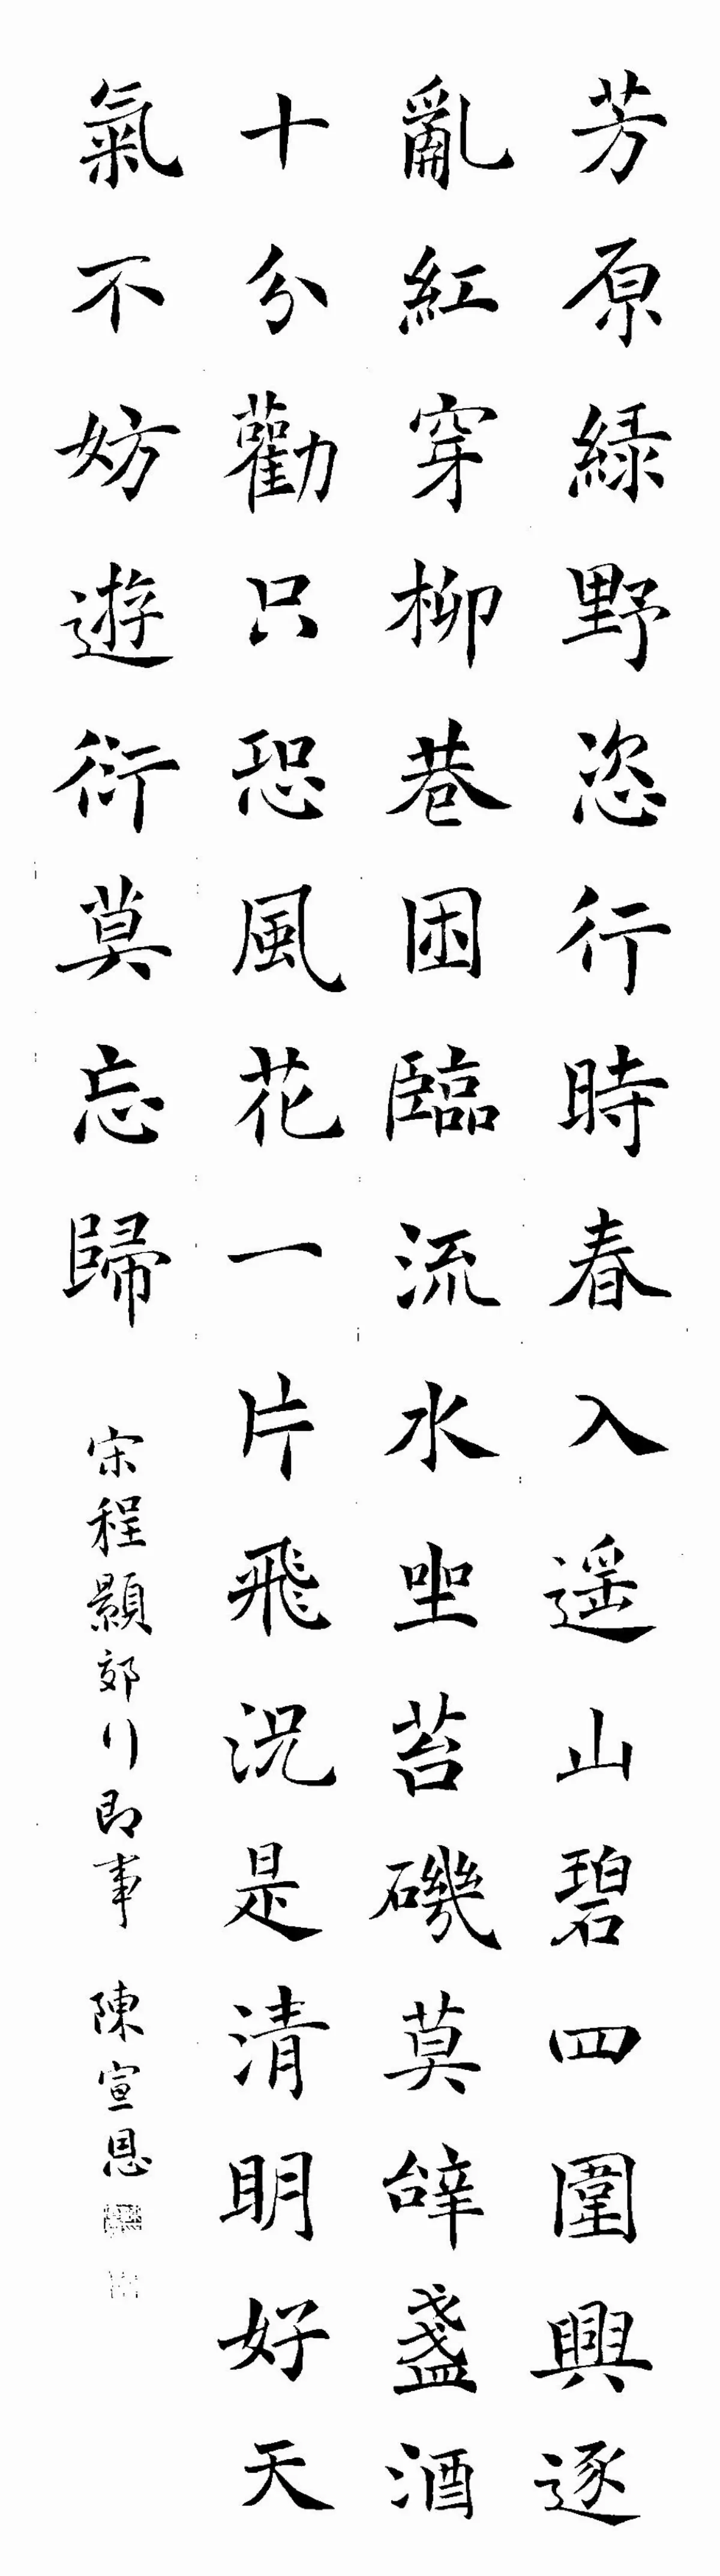 芳原綠野恣行時春入遥山碧四圍興逐
亂紅穿柳巷困臨流水坐苔磯莫辝盞酒
十分勸只恐風花一片飛況是清明好天
氣不妨遊衍莫忘歸
宋程顥郊行即事 陳宣恩